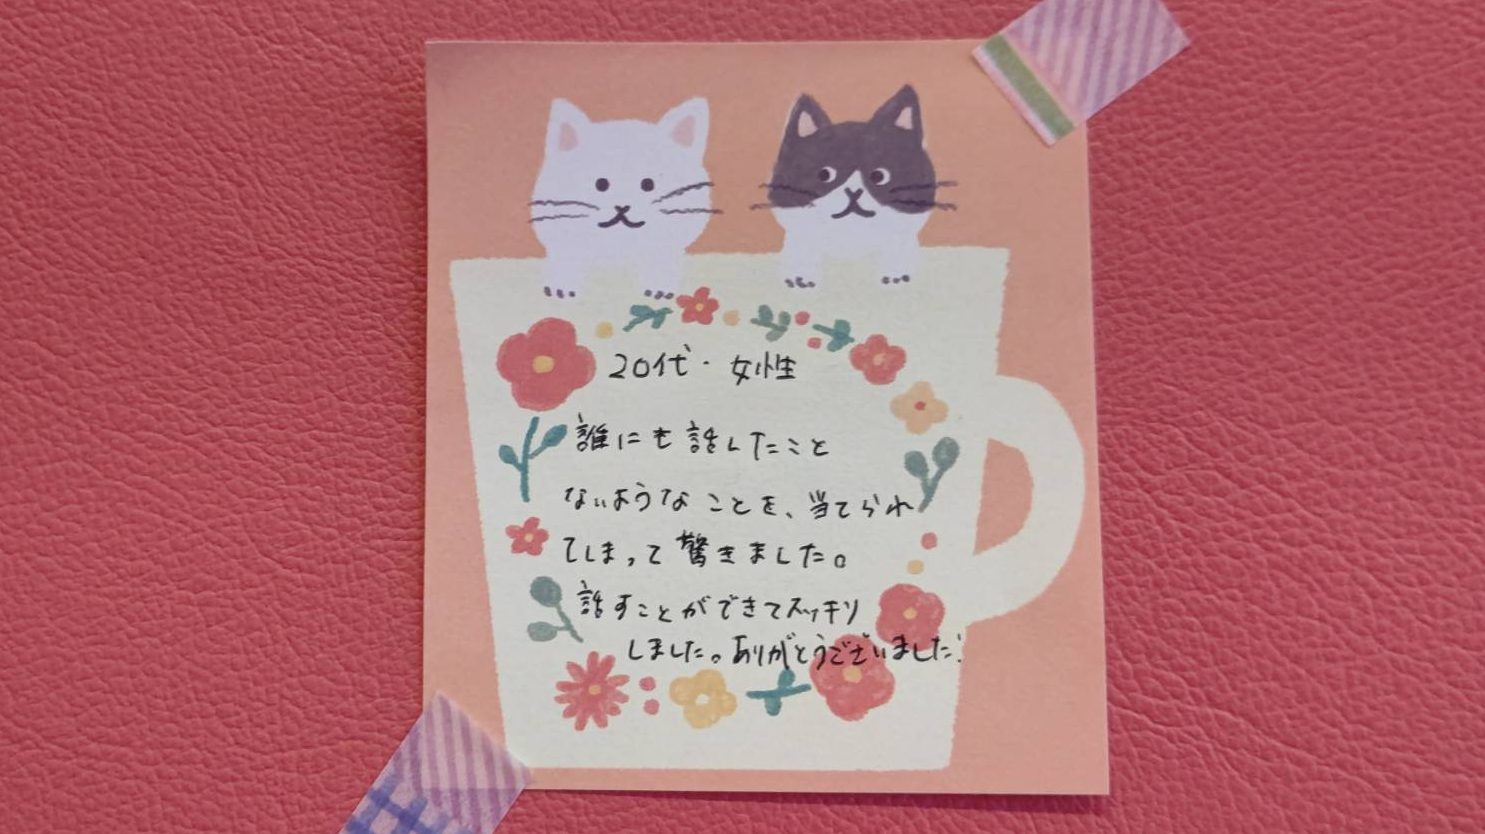 20代・女性
誰にも話したこと
ないようなことを、当てられ
てしまって驚きました。
話すことができてスッキリ
しました。ありがとうございました!